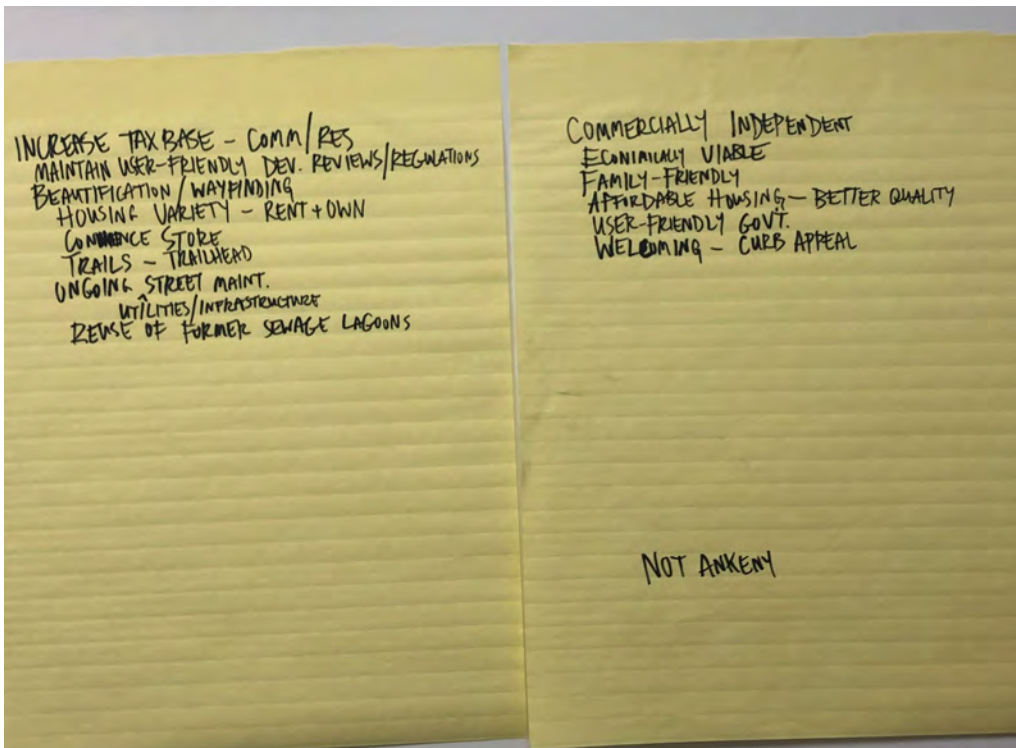 INCREASE TAX BASE – COMM/RES
MAINTAIN USER-FRIENDLY DEV. REVIEWS/REGULATIONS
BEAUTIFICATION/WAYFINDING
HOUSING VARIETY – RENT + OWN
STORE
TRAILS – TRAILHEAD
ONGOING STREET MAINT.
^ UTILITIES/INFRASTRUCTURE
REUSE OF FORMER SEWAGE LAGOONS
COMMERCIALLY INDEPENDENT
ECONIMICALLY VIABLE
FAMILY-FRIENDLY
AFFORDABLE HOUSING – BETTER QUALITY
USER-FRIENDLY GOVT.
WELCOMING – CURB APPEAL
NOT ANKENY